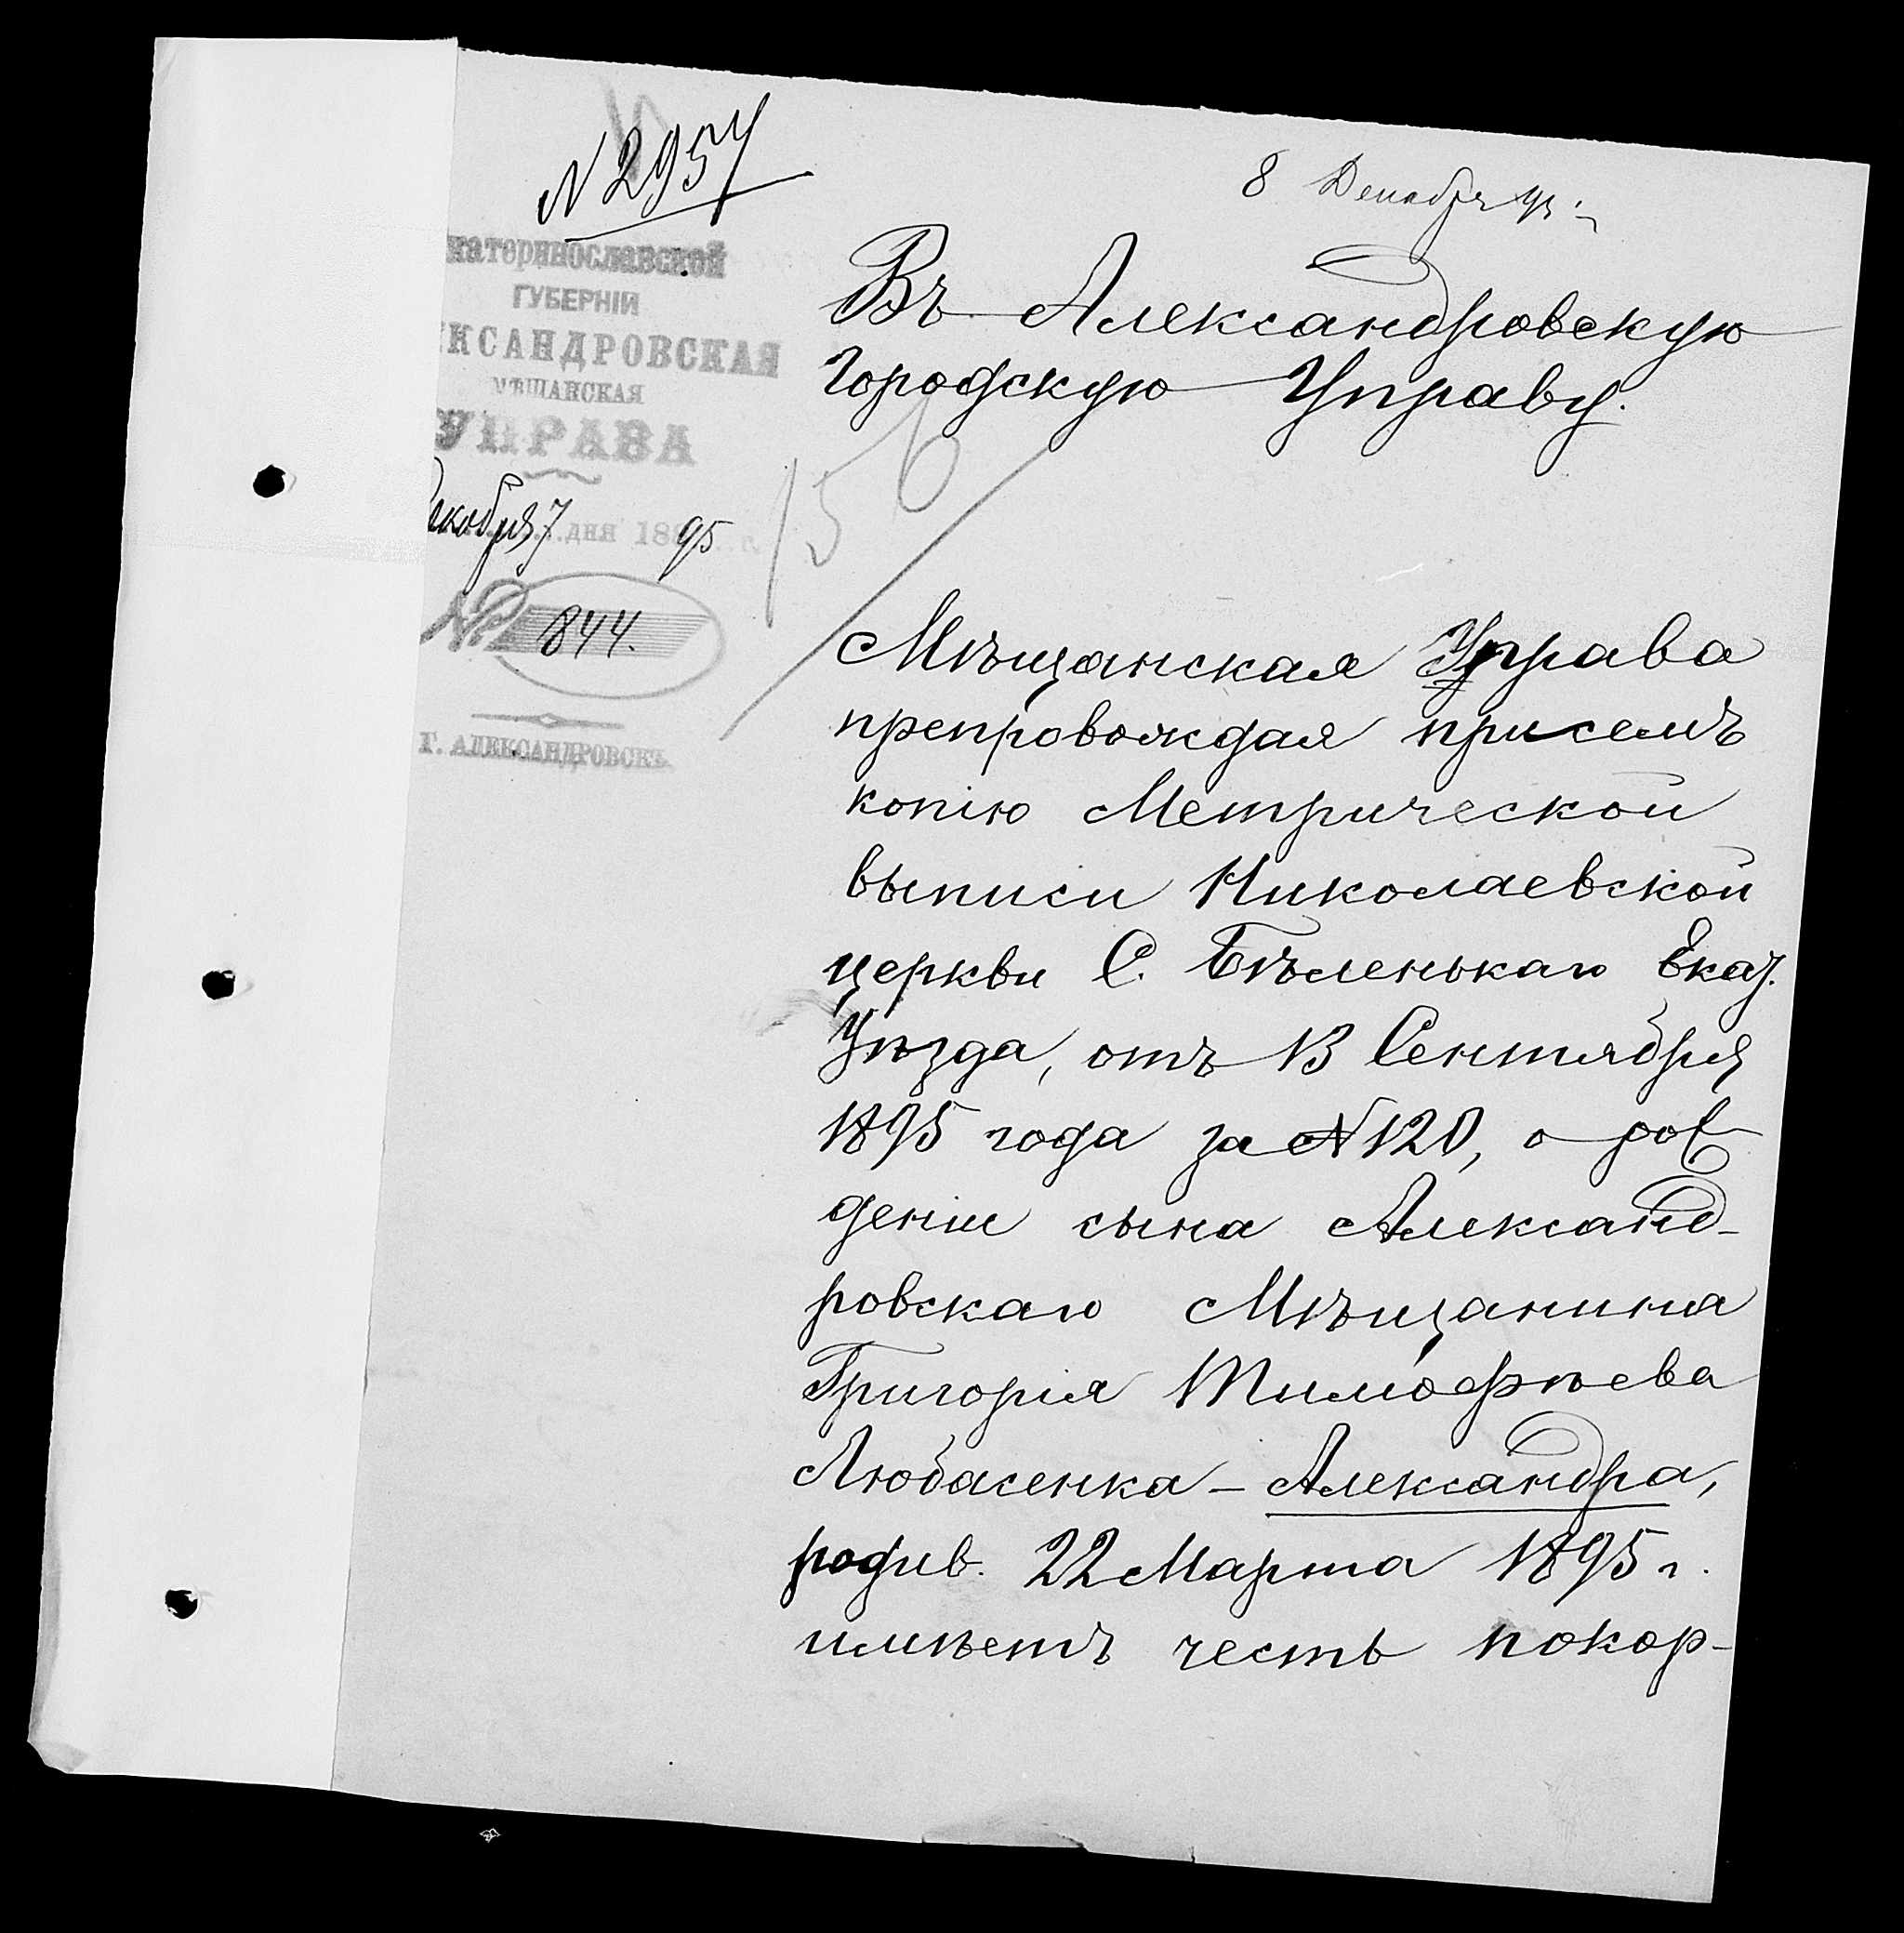 N 2957
8 Декабря 95 г.
катеринославской
ГУБЕРНІИ
КСАНДРОВСКАЯ
МѢЩАНСКАЯ
УПРАВА
Декабря 7 дня 1895 г.
№ 844.
Г. АЛЕКСАНДРОВСКЪ
Въ Александровскую
Городскую Управу.
156
Мѣщанская Управа
препровождая присемъ
копію Метрической
выписи Николаевской
церкви С. Бѣленькаго Екат.
Уѣзда, отъ 13 Сентября
1895 года за N 120, о рож
деніи сына Александ-
ровскаго Мѣщанина
Григорія Тимофѣева
Любасенка - Александра,
родив. 22 Марта 1895 г.
имѣетъ честь покор-